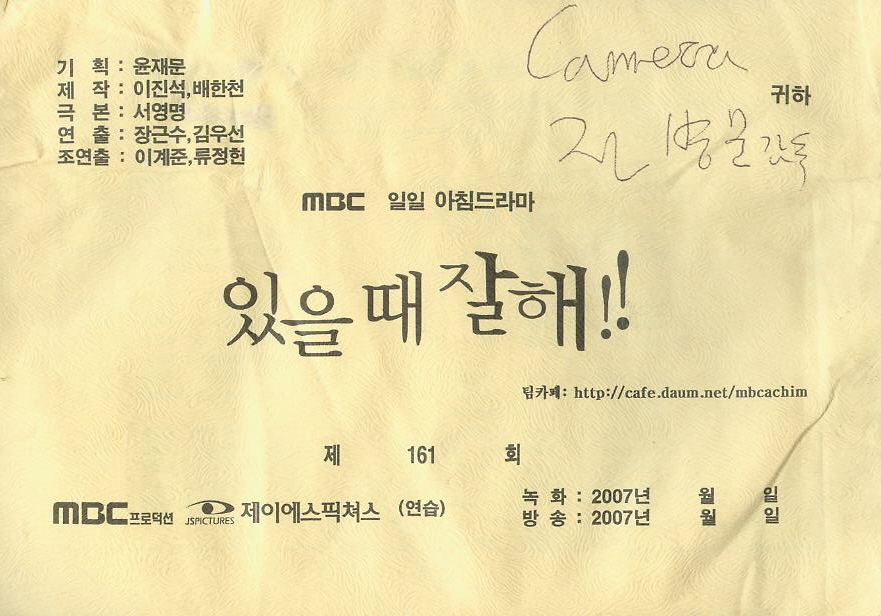 Camera
귀하
전병문 감독
기 획 : 윤재문
제 작 : 이진석,배한천
극 본 : 서영명
연 출 : 장근수,김우선
조연출 : 이계준,류정헌
MBC 일일 아침드라마
있을 때 잘해!!
팀카페: http://cafe.daum.net/mbcachim
제 161 회
MBC프로덕션 JSPICTURES 제이에스픽쳐스 (연습)
녹 화 : 2007년 월 일
방 송 : 2007년 월 일